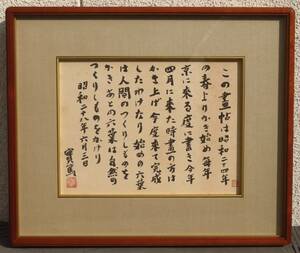 この畫帖は昭和二十四年
の春よりかき始め毎年
京に来る度に書き今年
四月に来た時畫の方は
かき上げ今度来て完成
したわけなり始めの六葉
は人間のつくりしものを
かきあとの六葉は自然の
つくりしものをかけり
昭和二十八年六月三日
實篤